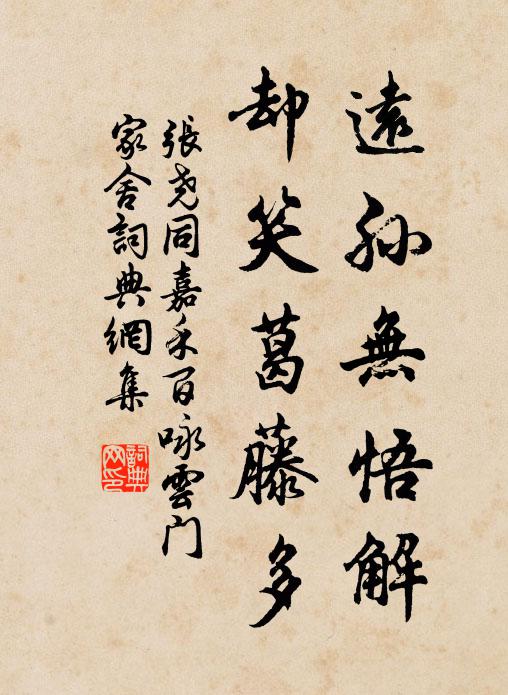 遠孫無悟解
却笑葛藤多
張堯同嘉禾百咏雲门
家舍詞典網集
詞典网印